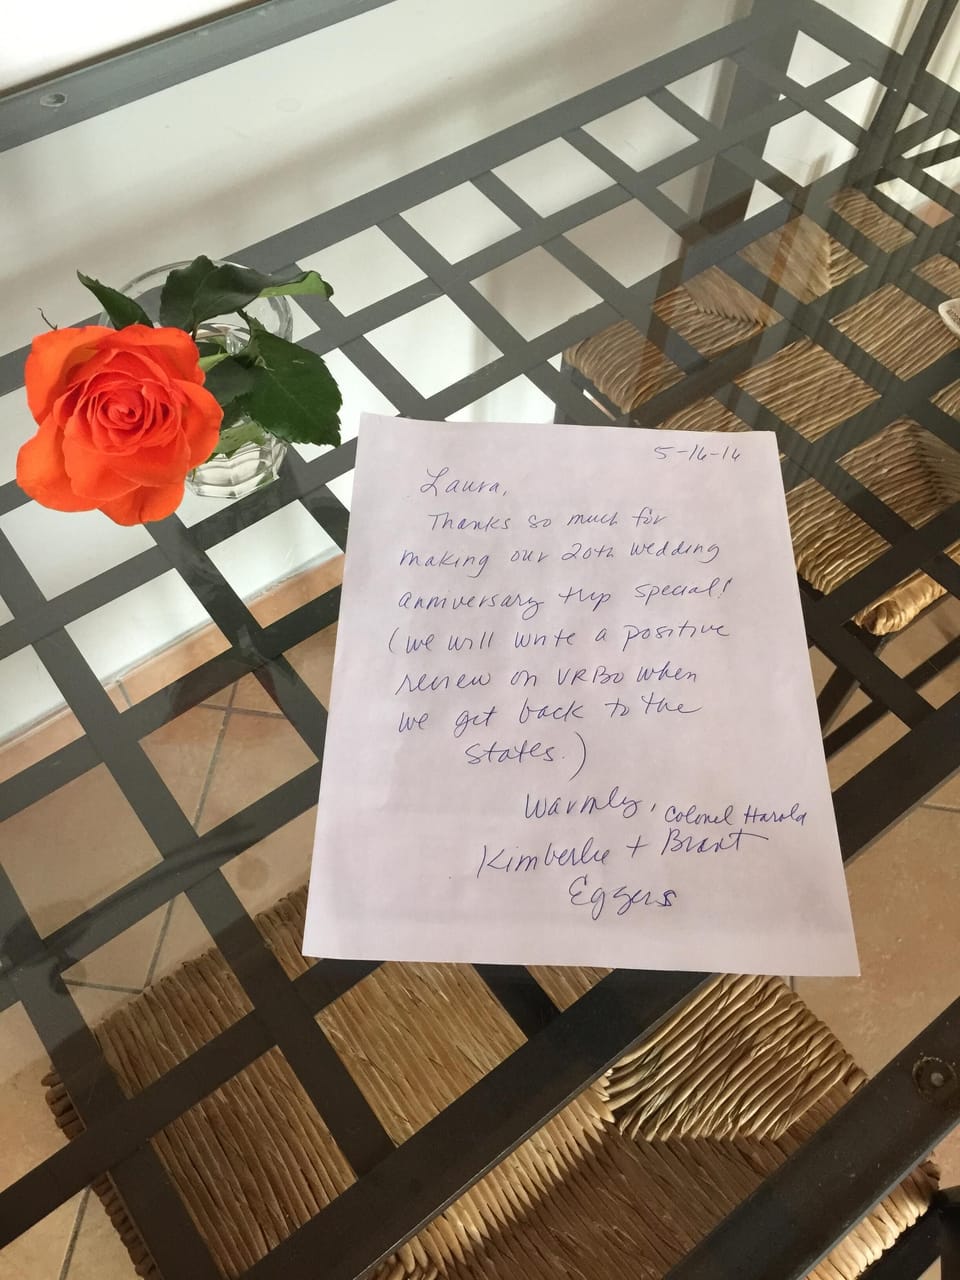 5-16-16
Laura,
Thanks so much for
making our 20th wedding
anniversary trip special!
(we will write a positive
review on VRBO when
we get back to the
States.)
Warmly,
Colonel Harold
Kimberlie + Brant
Eggers